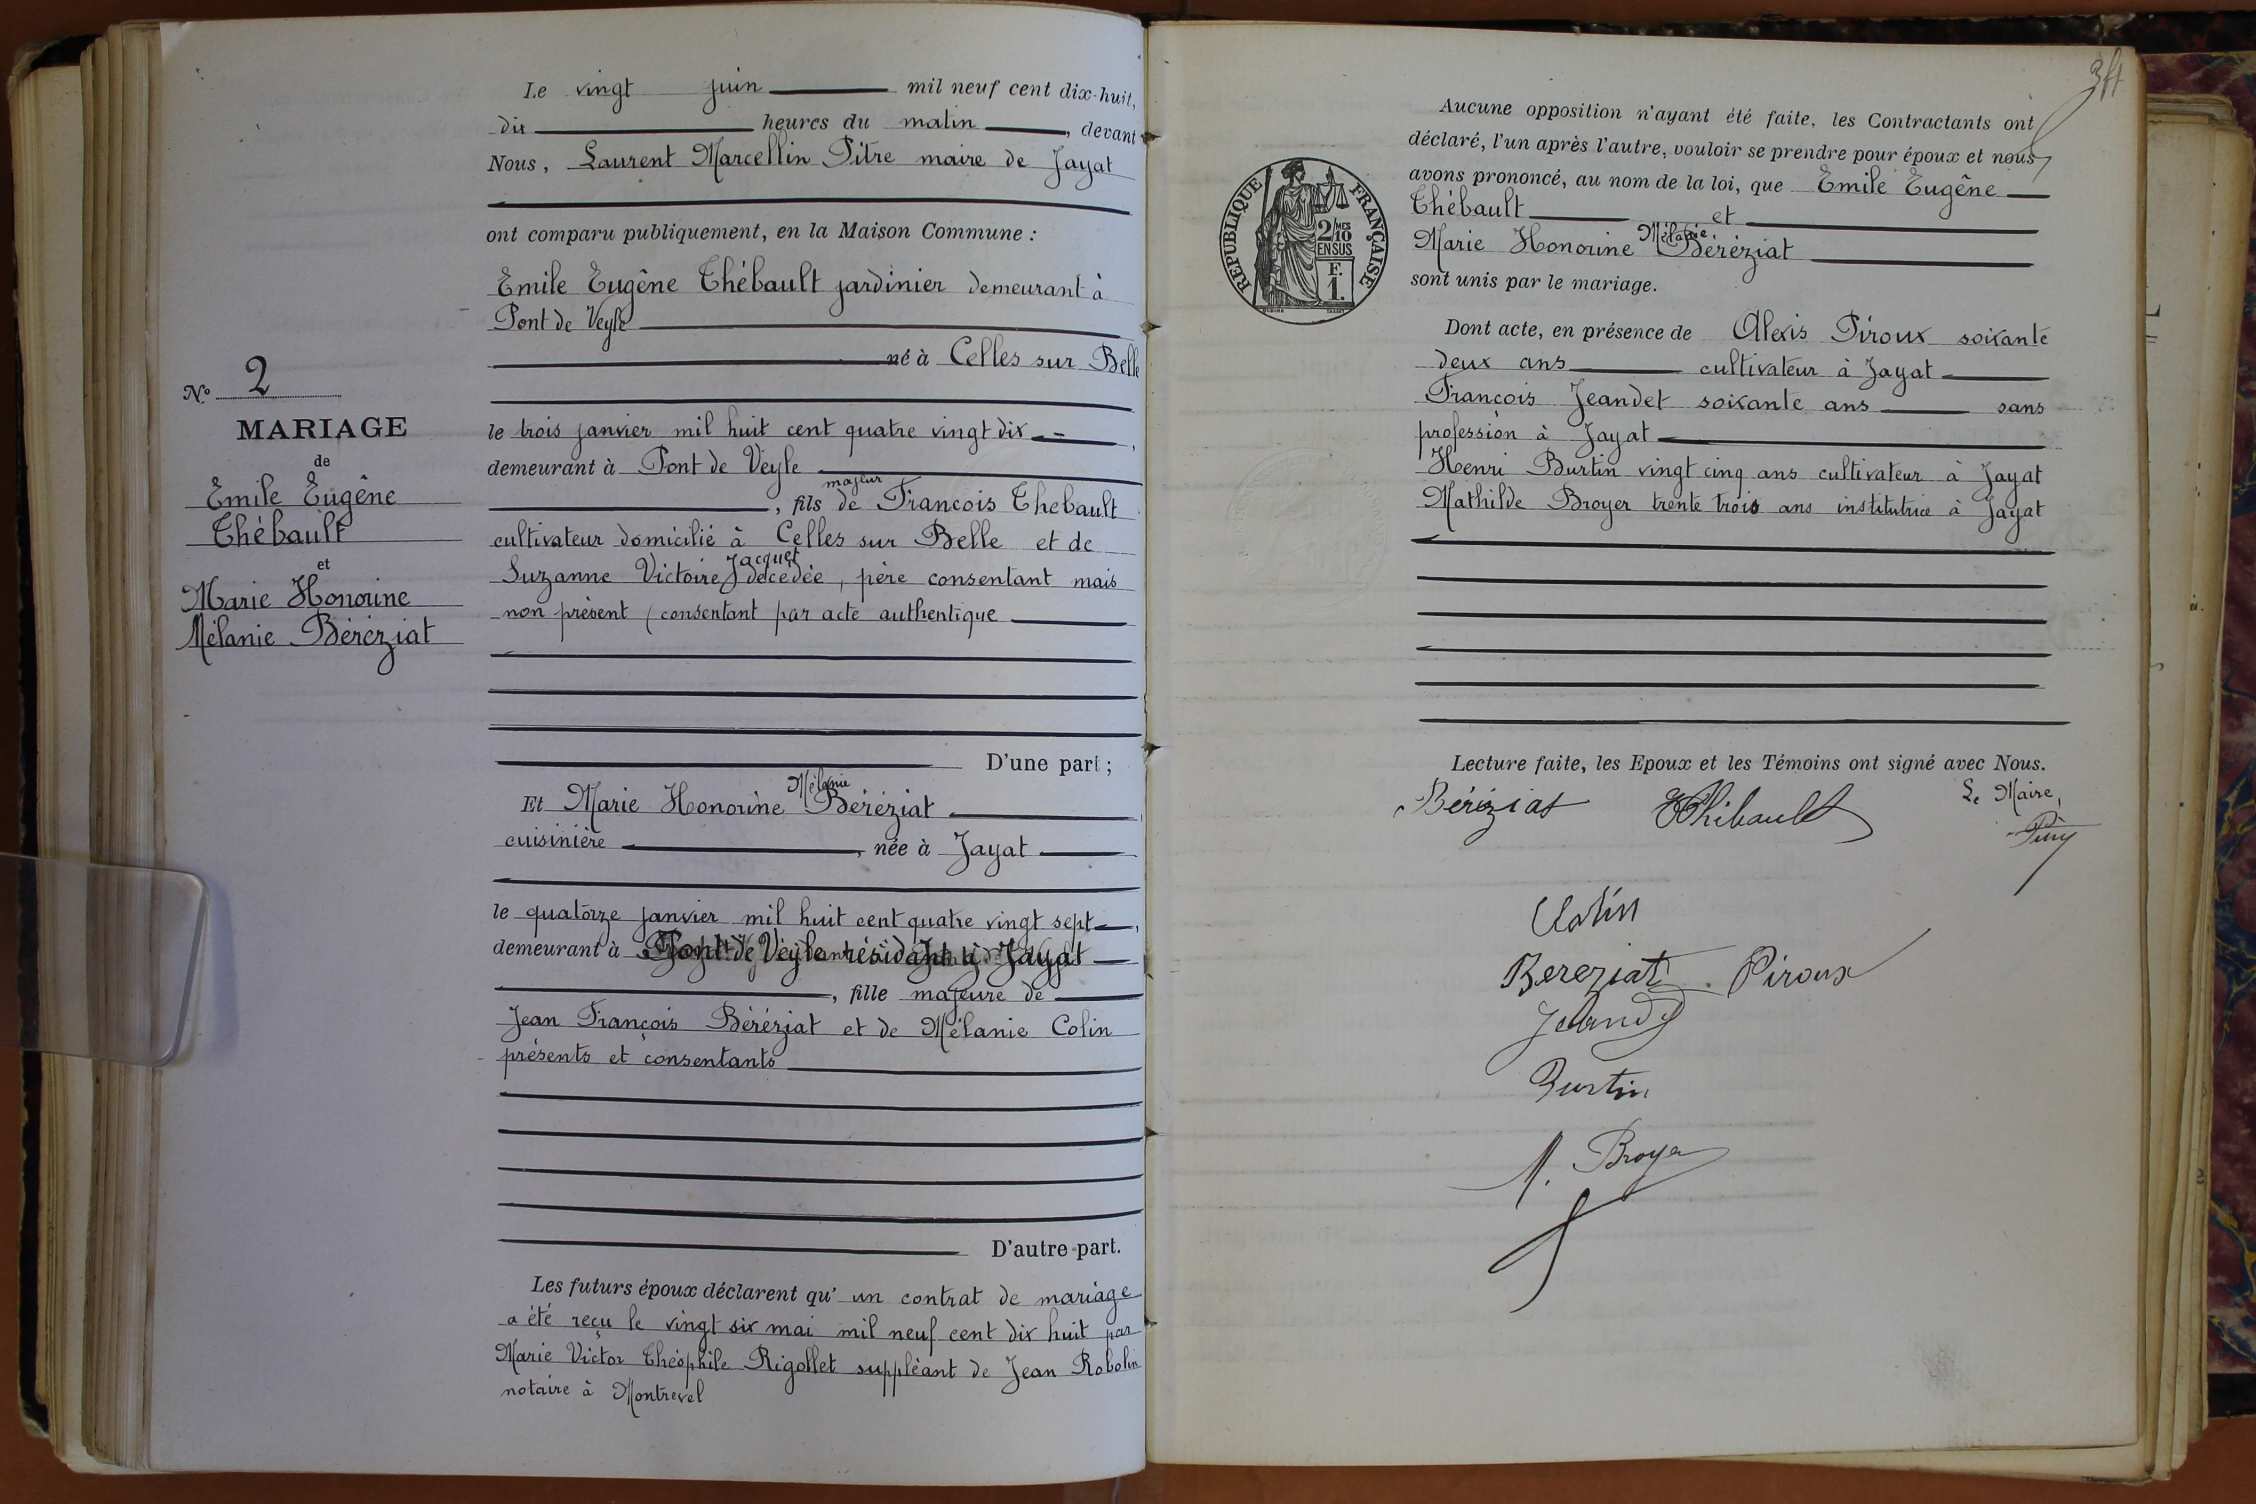 Le vingt juin mil neuf cent dix-huit,
dix heures du matin, devant
Nous, Laurent Marcellin Pitre maire de Jayat
ont comparu publiquement, en la Maison Commune :
Emile Eugêne Thébault jardinier demeurant à
Pont de Veyle
né à Celles sur Belle
le trois janvier mil huit cent quatre vingt dix,
demeurant à Pont de Veyle
majeur
, fils de François Thebault
cultivateur domicilié à Celles sur Belle et de
Jacquet
Suzanne Victoire décédée, père consentant mais
non présent (consentant par acte authentique
D'une part ;
Mélanie
Et Marie Honorine Béréziat
cuisinière, née à Jayat
le quatorze janvier mil huit cent quatre vingt sept,
demeurant à Pont de Veyle résidant à Jayat
, fille majeure de
Jean François Béréziat et de Mélanie Colin
présents et consentants
D'autre part.
Les futurs époux déclarent qu' un contrat de mariage
a été reçu le vingt six mai mil neuf cent dix huit par
Marie Victor Théophile Rigollet suppléant de Jean Robolin
notaire à Montrevel
No 2
MARIAGE
de
Emile Eugêne
Thébault
et
Marie Honorine
Mélanie Béréziat
34
Aucune opposition n'ayant été faite, les Contractants ont
déclaré, l'un après l'autre, vouloir se prendre pour époux et nous
avons prononcé, au nom de la loi, que Emile Eugêne
Thébault et
Mélanie
Marie Honorine Béréziat
sont unis par le mariage.
RÉPUBLIQUE FRANÇAISE
2/10 MES
EN SUS
F.
1.
Dont acte, en présence de Alexis Piroux soixante
deux ans cultivateur à Jayat
François Jeandet soixante ans sans
profession à Jayat
Henri Burtin vingt cinq ans cultivateur à Jayat
Mathilde Broyer trente trois ans institutrice à Jayat
Lecture faite, les Epoux et les Témoins ont signé avec Nous.
Le Maire,
Béréziat EThébault
Colin
Bereziat Piroux
Jeandet
Burtin
M. Broyer